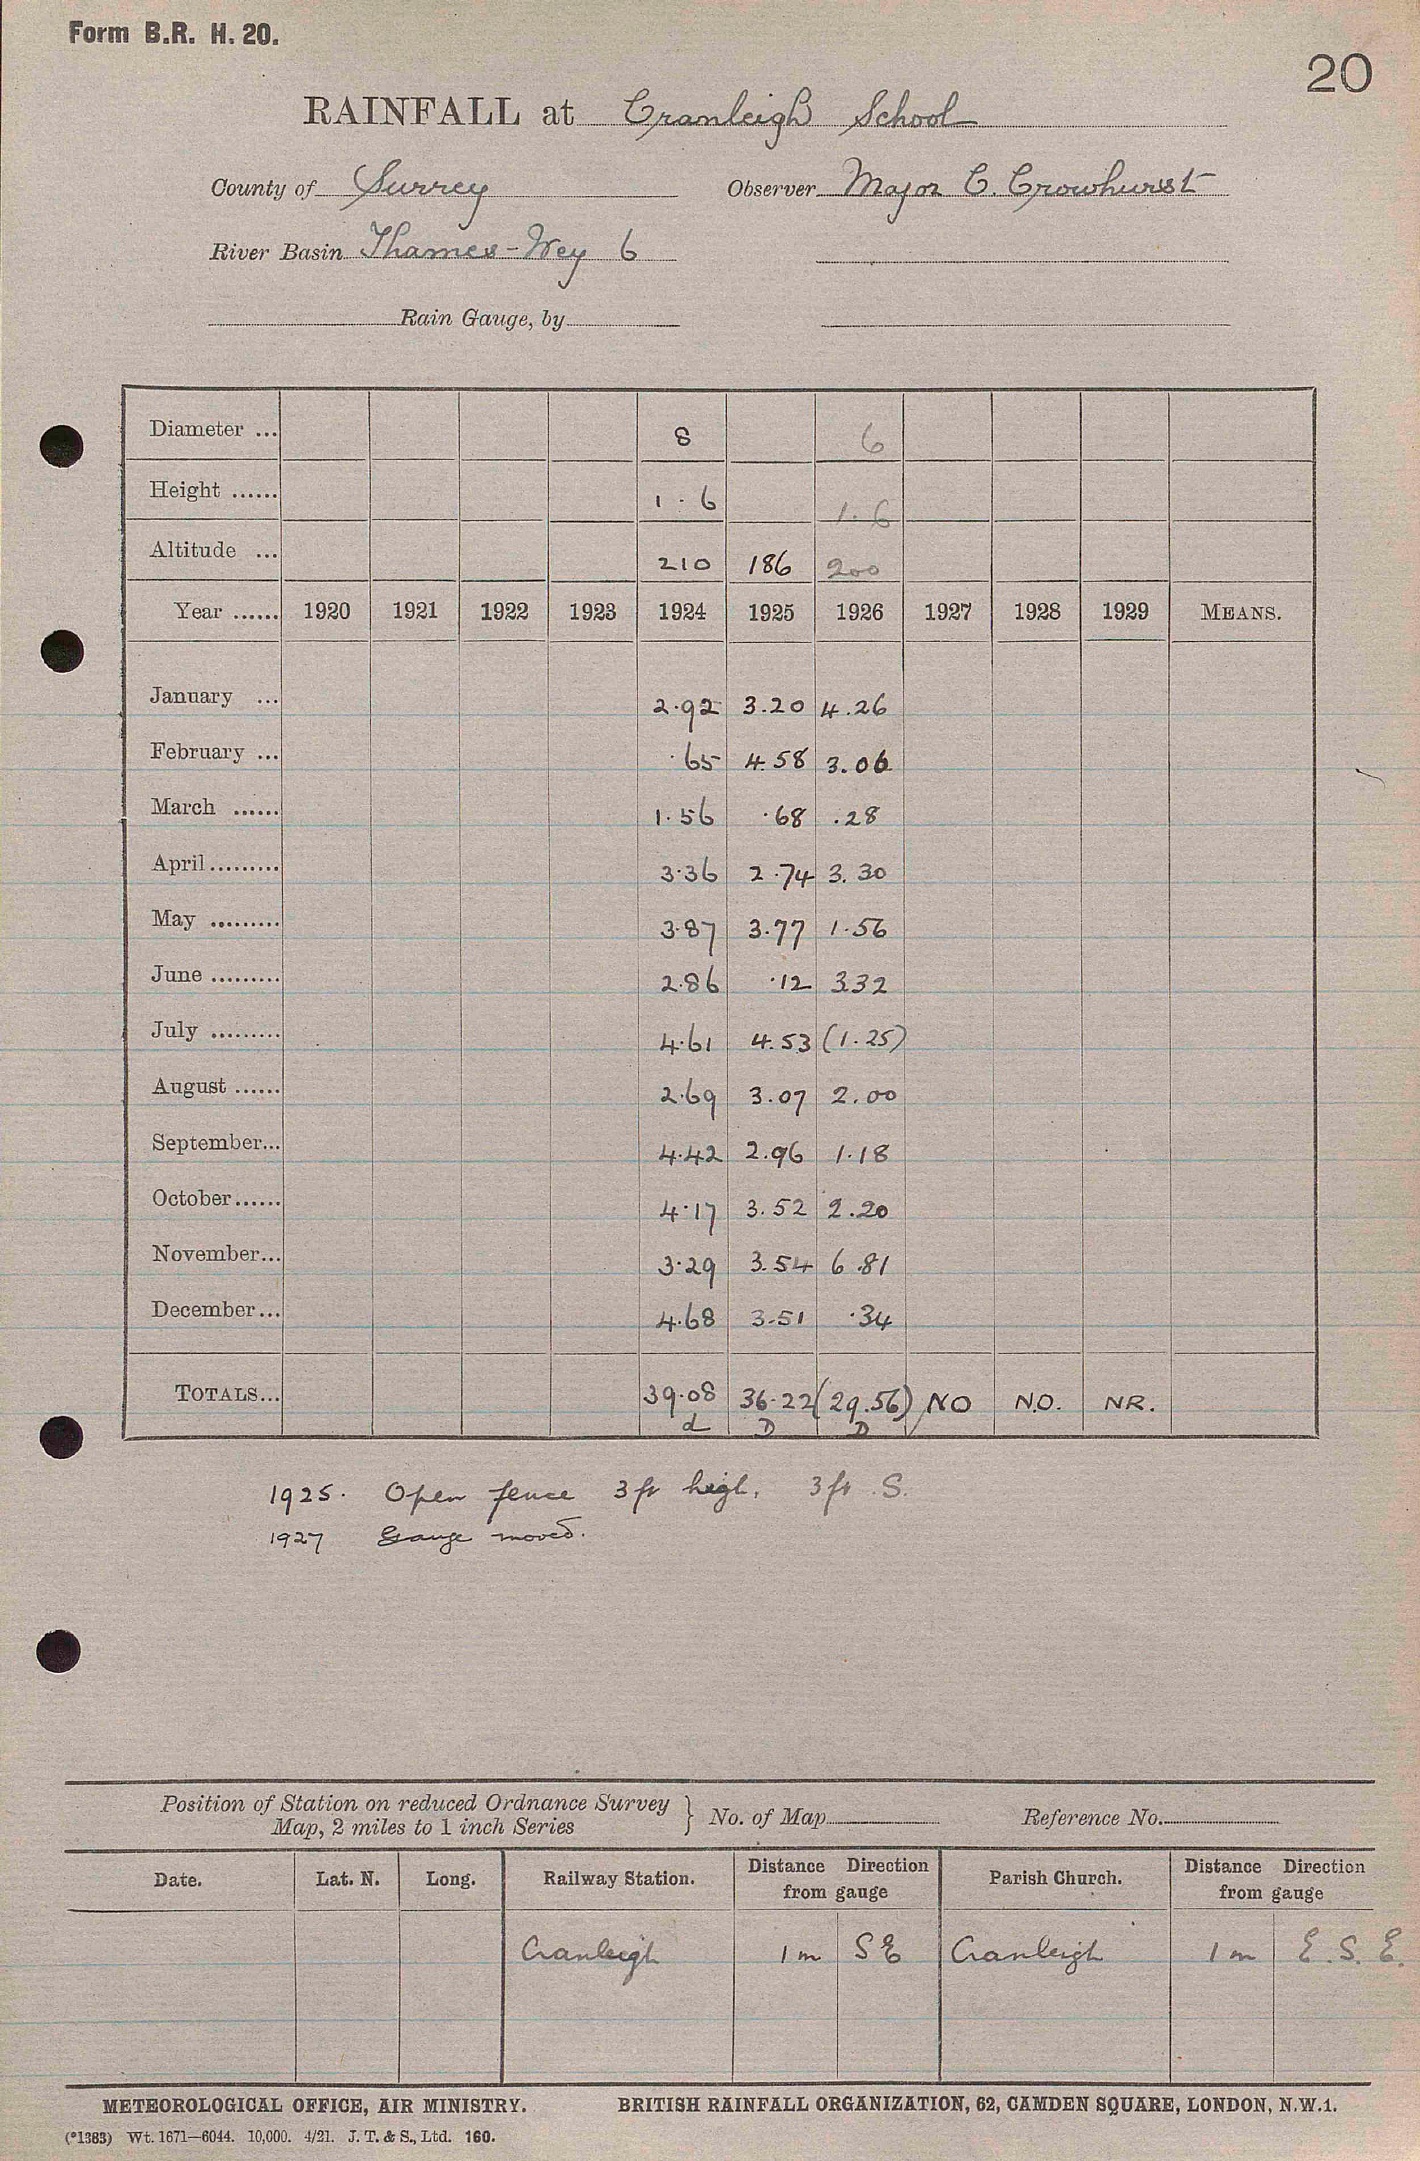 Form B.R. H. 20.
20
RAINFALL at Cranleigh School
County of Surrey Observer Major C. Crowhurst
River Basin Thames-Wey 6
Rain Gauge, by
Diameter ... 8 6
Height ...... 1 . 6 1. 6
Altitude ... 210 186 200
Year ...... 1920 1921 1922 1923 1924 1925 1926 1927 1928 1929 MEANS.
January ... 2.92 3.20 4.26
February ... .65 4.58 3.06
March ...... 1.56 .68 .28
April ......... 3.36 2.74 3.30
May ......... 3.87 3.77 1.56
June ......... 2.86 .12 3.32
July ......... 4.61 4.53 (1.25)
August ...... 2.69 3.07 2.00
September... 4.42 2.96 1.18
October...... 4.17 3.52 2.20
November... 3.29 3.54 6.81
December... 4.68 3.51 .34
TOTALS... 39.08 36.22 (29.56) NO N.O. NR.
d D D
1925. Open fence 3 ft high, 3 ft S.
1927 Gauge moved.
Position of Station on reduced Ordnance Survey
Map, 2 miles to 1 inch Series } No. of Map Reference No.
Date. Lat. N. Long. Railway Station. Distance Direction from gauge Parish Church. Distance Direction from gauge
Cranleigh 1 m SE Cranleigh 1 m E.S.E.
METEOROLOGICAL OFFICE, AIR MINISTRY. BRITISH RAINFALL ORGANIZATION, 62, CAMDEN SQUARE, LONDON, N.W.1.
(*1383) Wt. 1671—6044. 10,000. 4/21. J. T. & S., Ltd. 160.